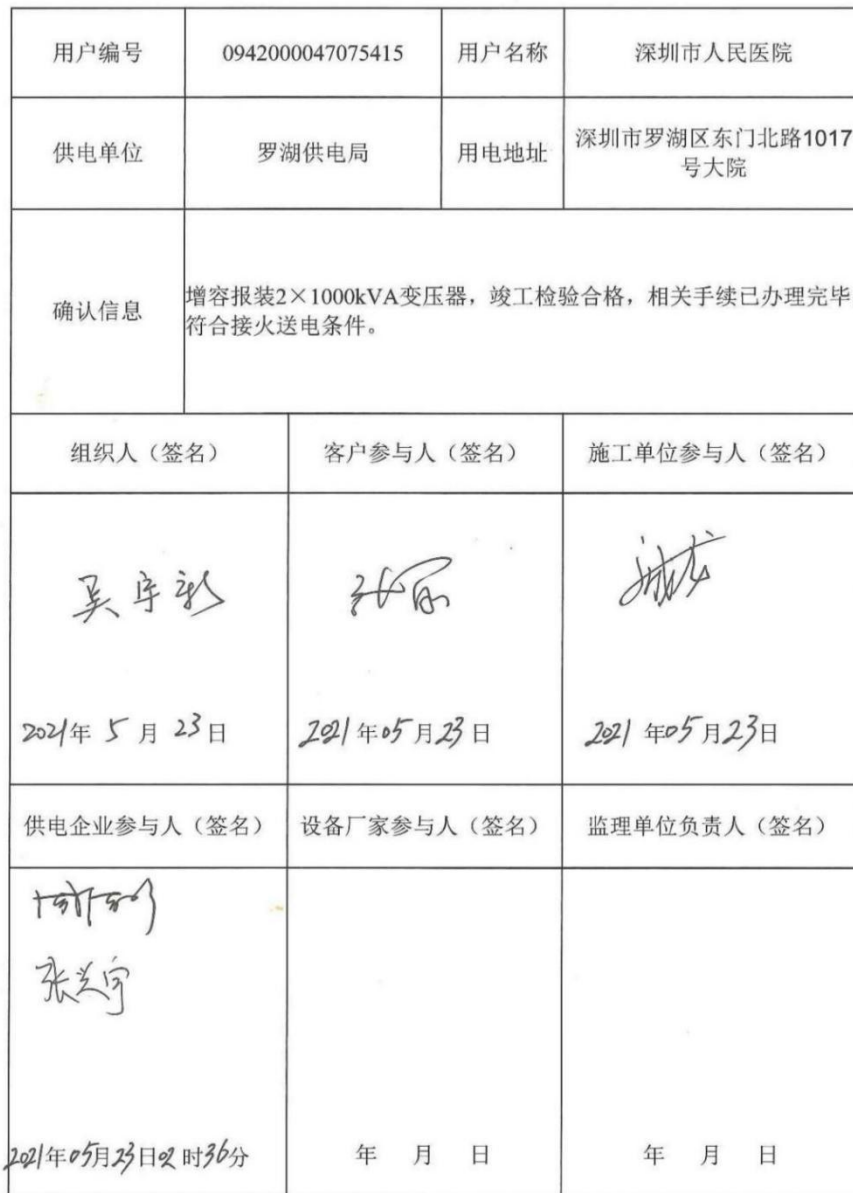 用户编号 0942000047075415 用户名称 深圳市人民医院
供电单位 罗湖供电局 用电地址 深圳市罗湖区东门北路1017
号大院
确认信息 增容报装2×1000kVA变压器，竣工检验合格，相关手续已办理完毕
符合接火送电条件。
组织人（签名） 客户参与人（签名） 施工单位参与人（签名）
吴宇新
2021年 5 月 23 日 2021 年 05 月 23 日 2021 年 05 月 23 日
供电企业参与人（签名） 设备厂家参与人（签名） 监理单位负责人（签名）
张兴宇
2021年05月23日02时36分 年 月 日 年 月 日